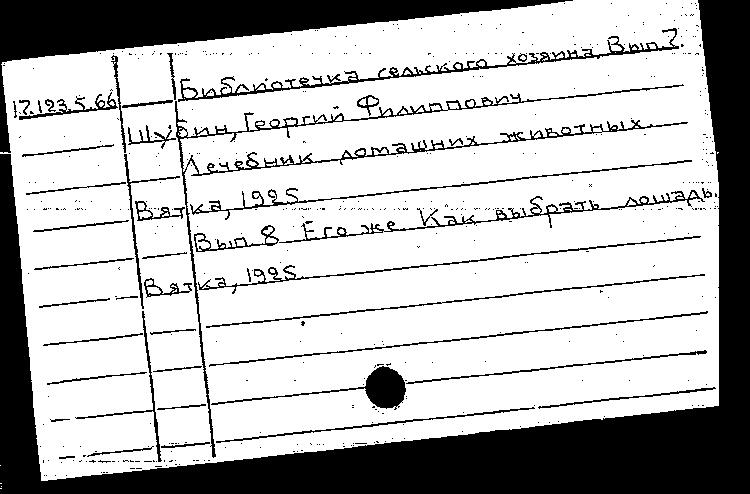 17.123.5.66 Библиотечка сельского хозяина, Вып. 7.
Шубин, Георгий Филиппович.
Лечебник домашних животных.
Вятка, 1925
Вып. 8 Его же. Как выбрать лошадь.
Вятка, 1925.